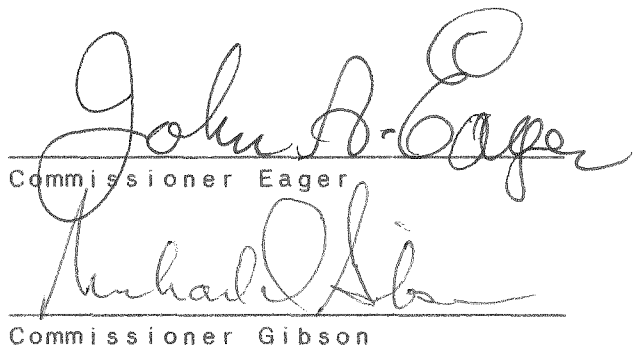 John A. Eager
Commissioner Eager
Michael D Gibson
Commissioner Gibson